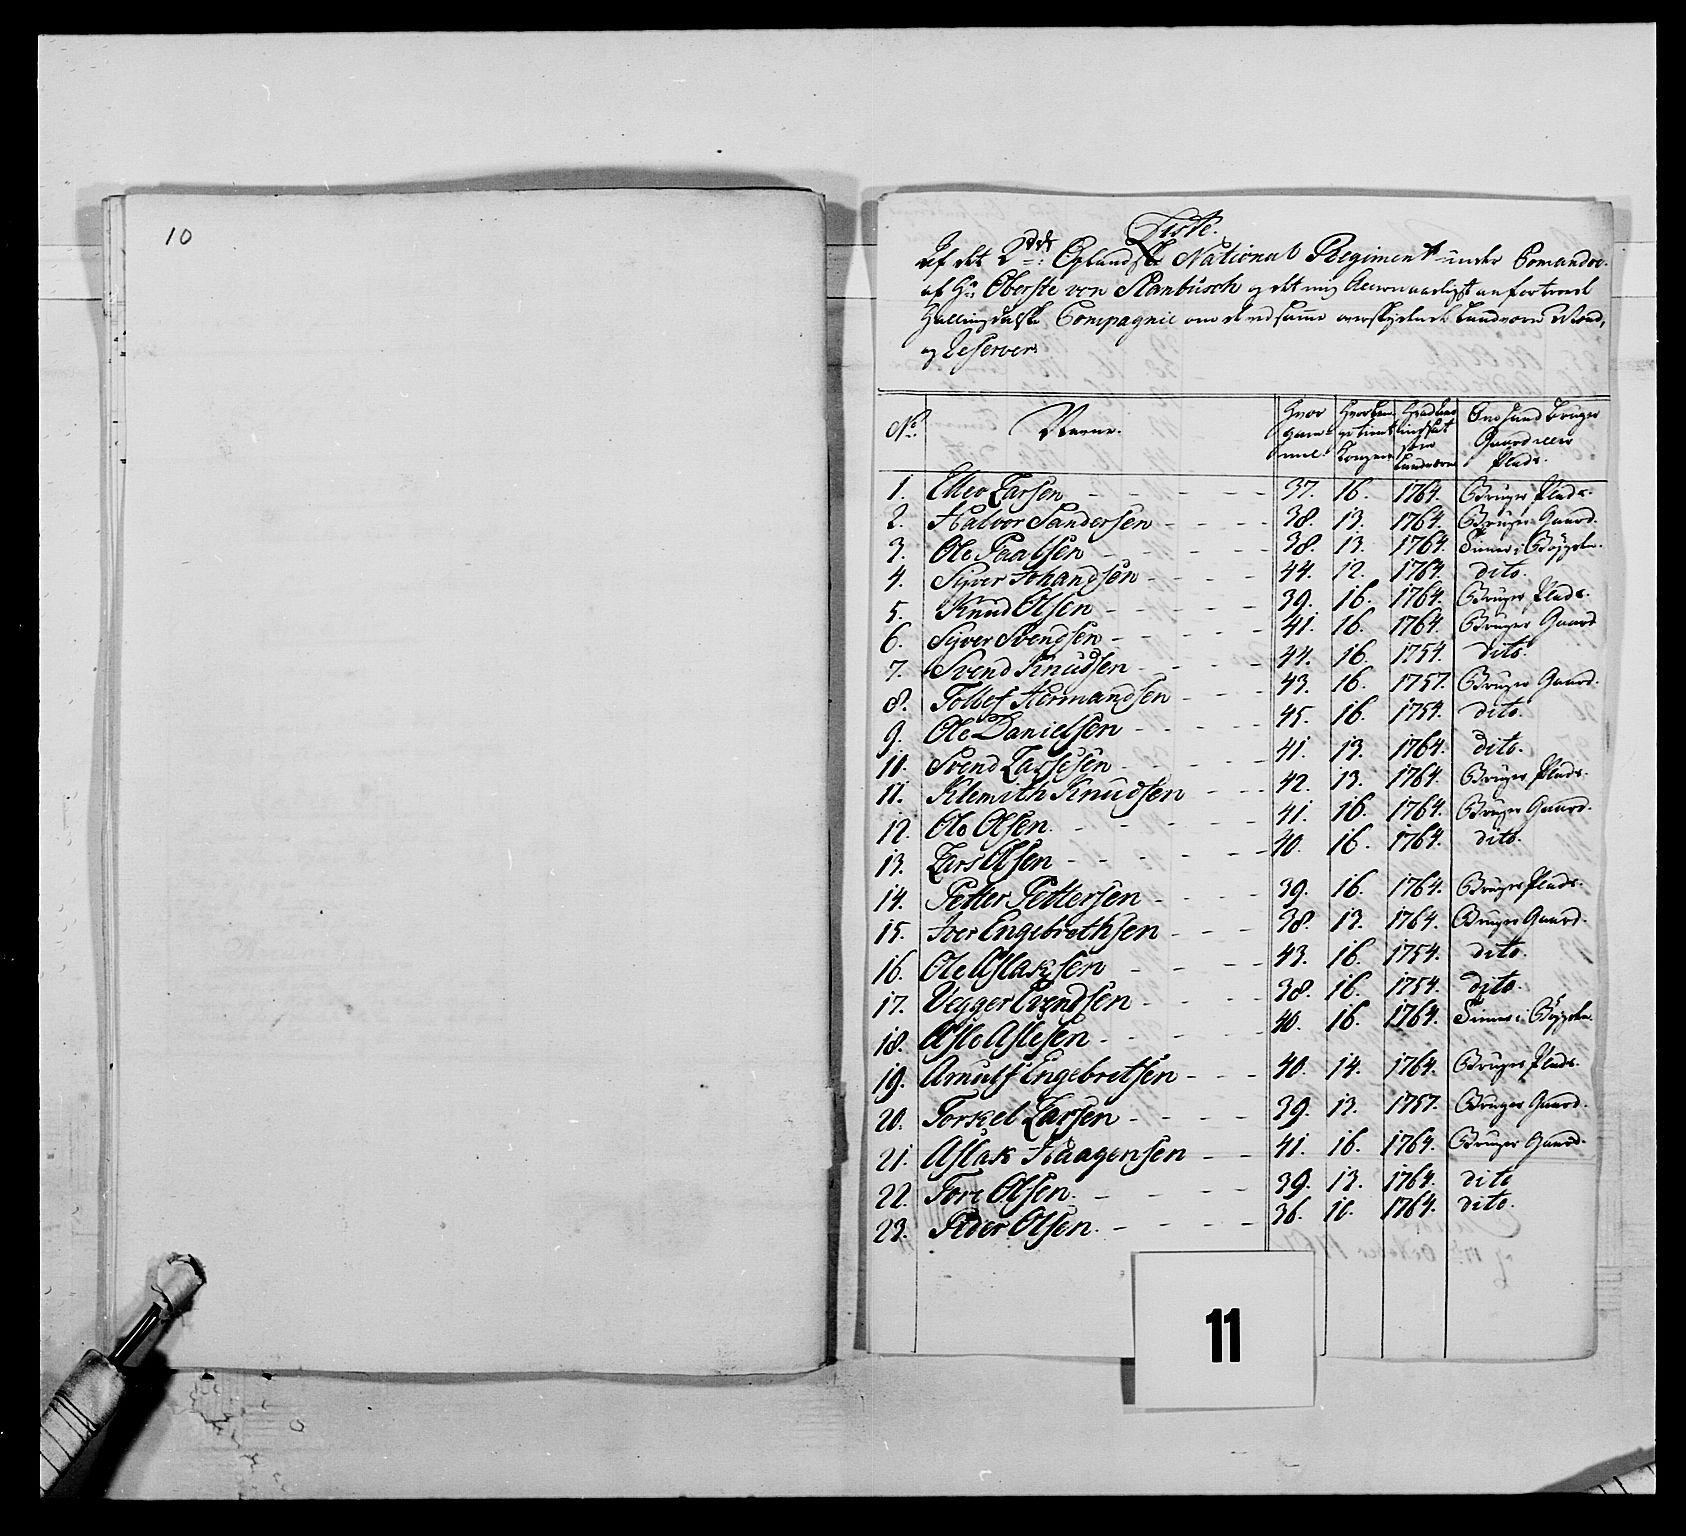 10
Liste.
Af det 2det Oplandske National Regiment under Comando
af Hr: Oberste von Stanbusch og det mig anfortroed
Hallingdalske Compagnie samme overskydende Landværn Mænd,
og Reserver
No: Navne. Hvor gammel. Hvorlæn: er tient Kongen Hvad Aar indsat som Landværn Om hand bruger Gaard eller Plads.
1. Ellev Larsen 37. 16. 1764. Bruger Plads.
2. Halvor Sandersen 38. 13. 1764. Bruger Gaard.
3. Ole Paalsen 38. 13. 1764. Tiener i Bøygden.
4. Syver Johandsen 44. 12. 1764. dito.
5. Knud Olsen 39. 16. 1764. Bruger Plads.
6. Syver Svendsen 41. 16. 1764. Bruger Gaard
7. Svend Knudsen 44. 16. 1754. dito.
8. Tollef Hermandsen 43. 16. 1757. Bruger Gaard.
9. Ole Danielsen 45. 16. 1754. dito.
10. Svend Lassesen 41. 13. 1764. dito.
11. Klemith Knudsen 42. 13. 1764. Bruger Plads.
12. Ole Olsen 41. 16. 1764. Bruger Gaard.
13. Lars Olsen 40. 16. 1764. dito.
14. Petter Pettersen 39. 16. 1764. Bruger Plads.
15. Iver Engebrethsen 38. 13. 1764. Bruger Gaard.
16. Ole Aslaksen 43. 16. 1754. dito.
17. Vegger Evendsen 38. 16. 1754. dito.
18. Asle Aslesen 40. 16. 1764. Tiener i Bøygden.
19. Arnulf Engebretsen 40. 14. 1764. Bruger Plads.
20. Torkel Larsen 39. 13. 1757. Bruger Gaard.
21. Aslak Haagensen 41. 16. 1764. Bruger Gaard.
22. Tore Olsen. 39. 13. 1764. dito
23. Peder Olsen. 36. 10. 1764. dito.
11